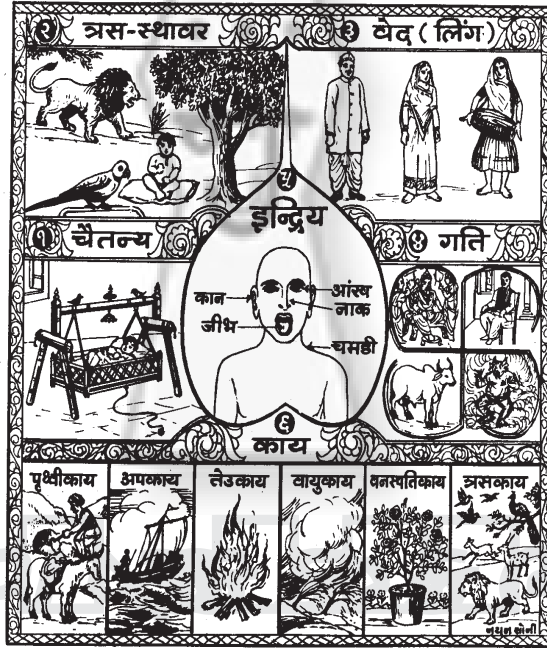 २ त्रस-स्थावर
३ वेद (लिंग)
५
इन्द्रिय
१ चैतन्य
४ गति
कान
आंख
नाक
जीभ
चमडी
६
काय
पृथ्वीकाय अपकाय तेउकाय वायुकाय वनस्पतिकाय त्रसकाय
नयन सोनी